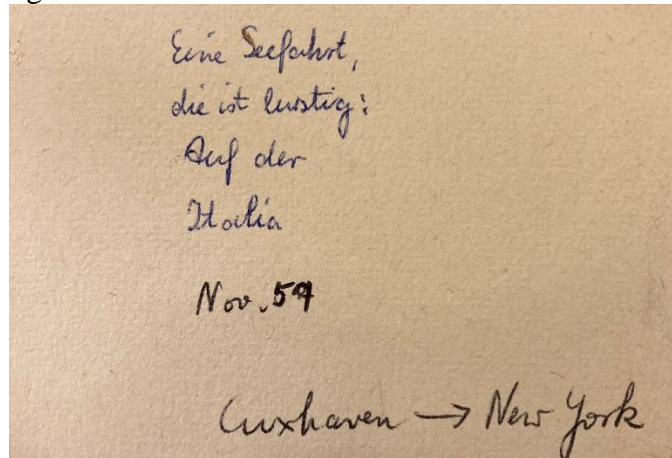 Eine Seefahrt,
die ist lustig:
Auf der
Italia
Nov. 57
Cuxhaven → New York